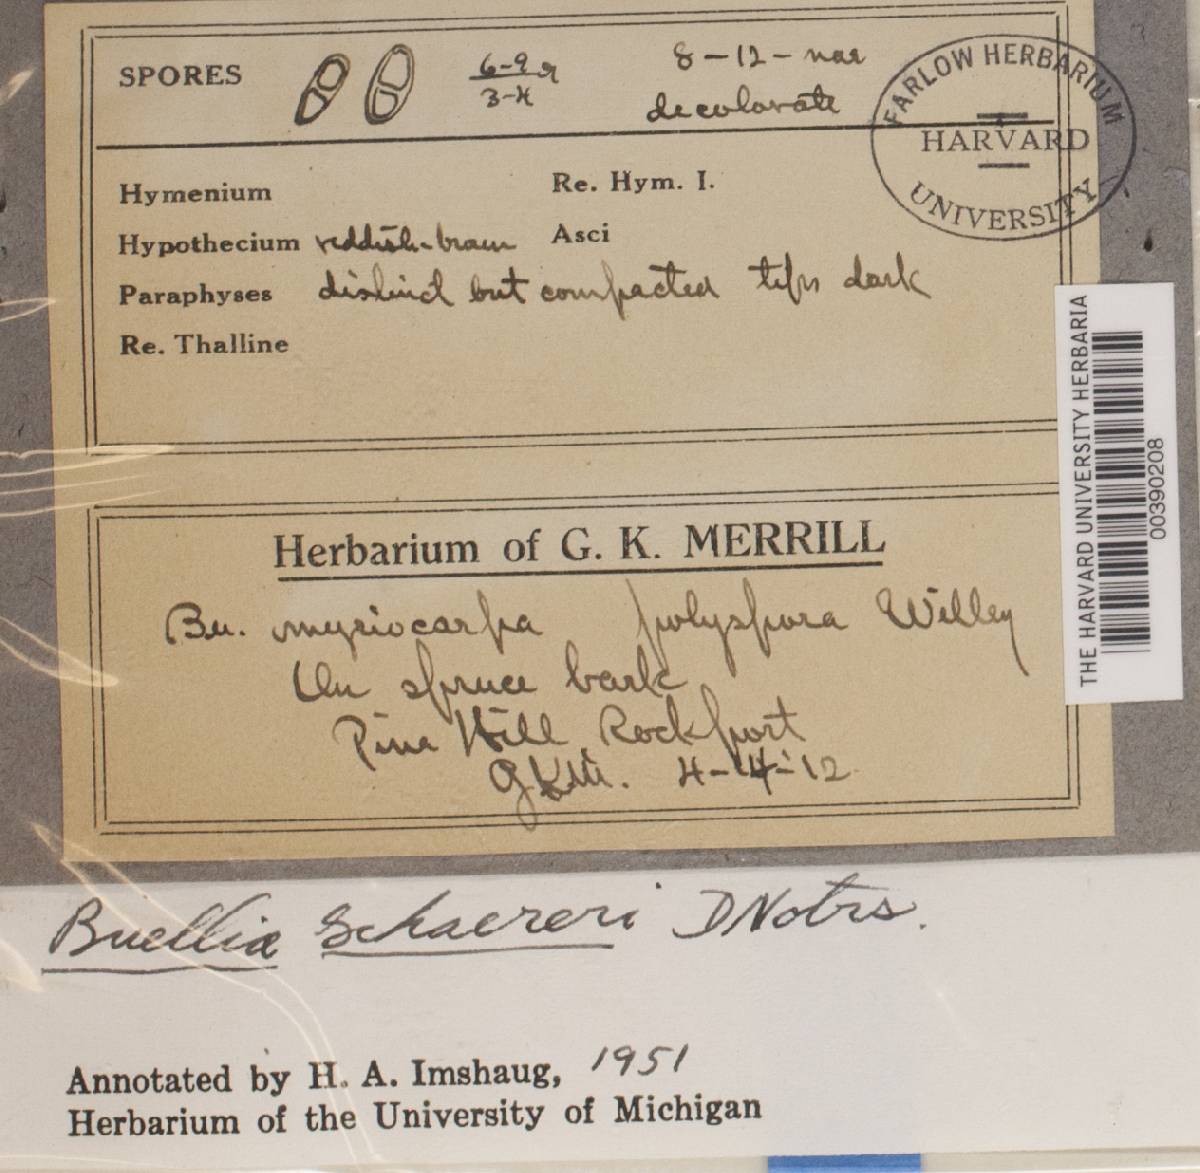 SPORES 6-9 8-12-nae
3-4 decolorate
FARLOW HERBARIUM
HARVARD
UNIVERSITY
Hymenium Re. Hym. I.
Hypothecium reddish-brown Asci
Paraphyses distinct but compacted tips dark
Re. Thalline
THE HARVARD UNIVERSITY HERBARIA
00390208
Herbarium of G. K. MERRILL
Bu. myriocarpa polyspora Willey
On spruce bark
Pine Hill Rockport
G.K.M. 4-14-12
Buellia Schaereri DNotrs.
Annotated by H. A. Imshaug, 1951
Herbarium of the University of Michigan